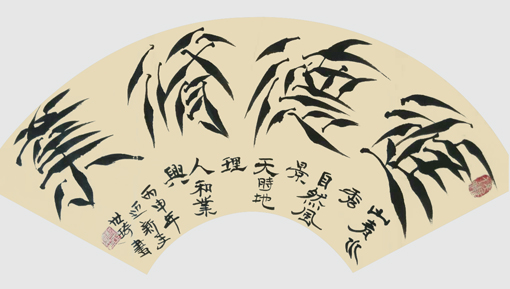 德修業
山青水
秀
自然風
景
天時地
理
人和業
興
丙申年
書